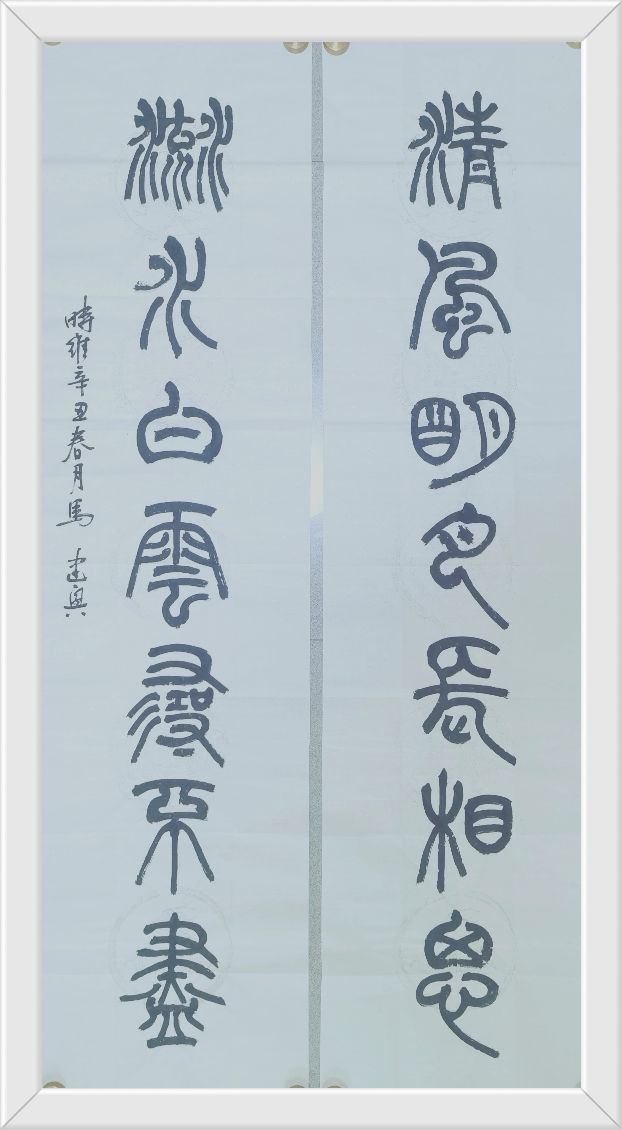 清風明月長相思
流水白雲尋不盡
時維辛丑春月馬 建興